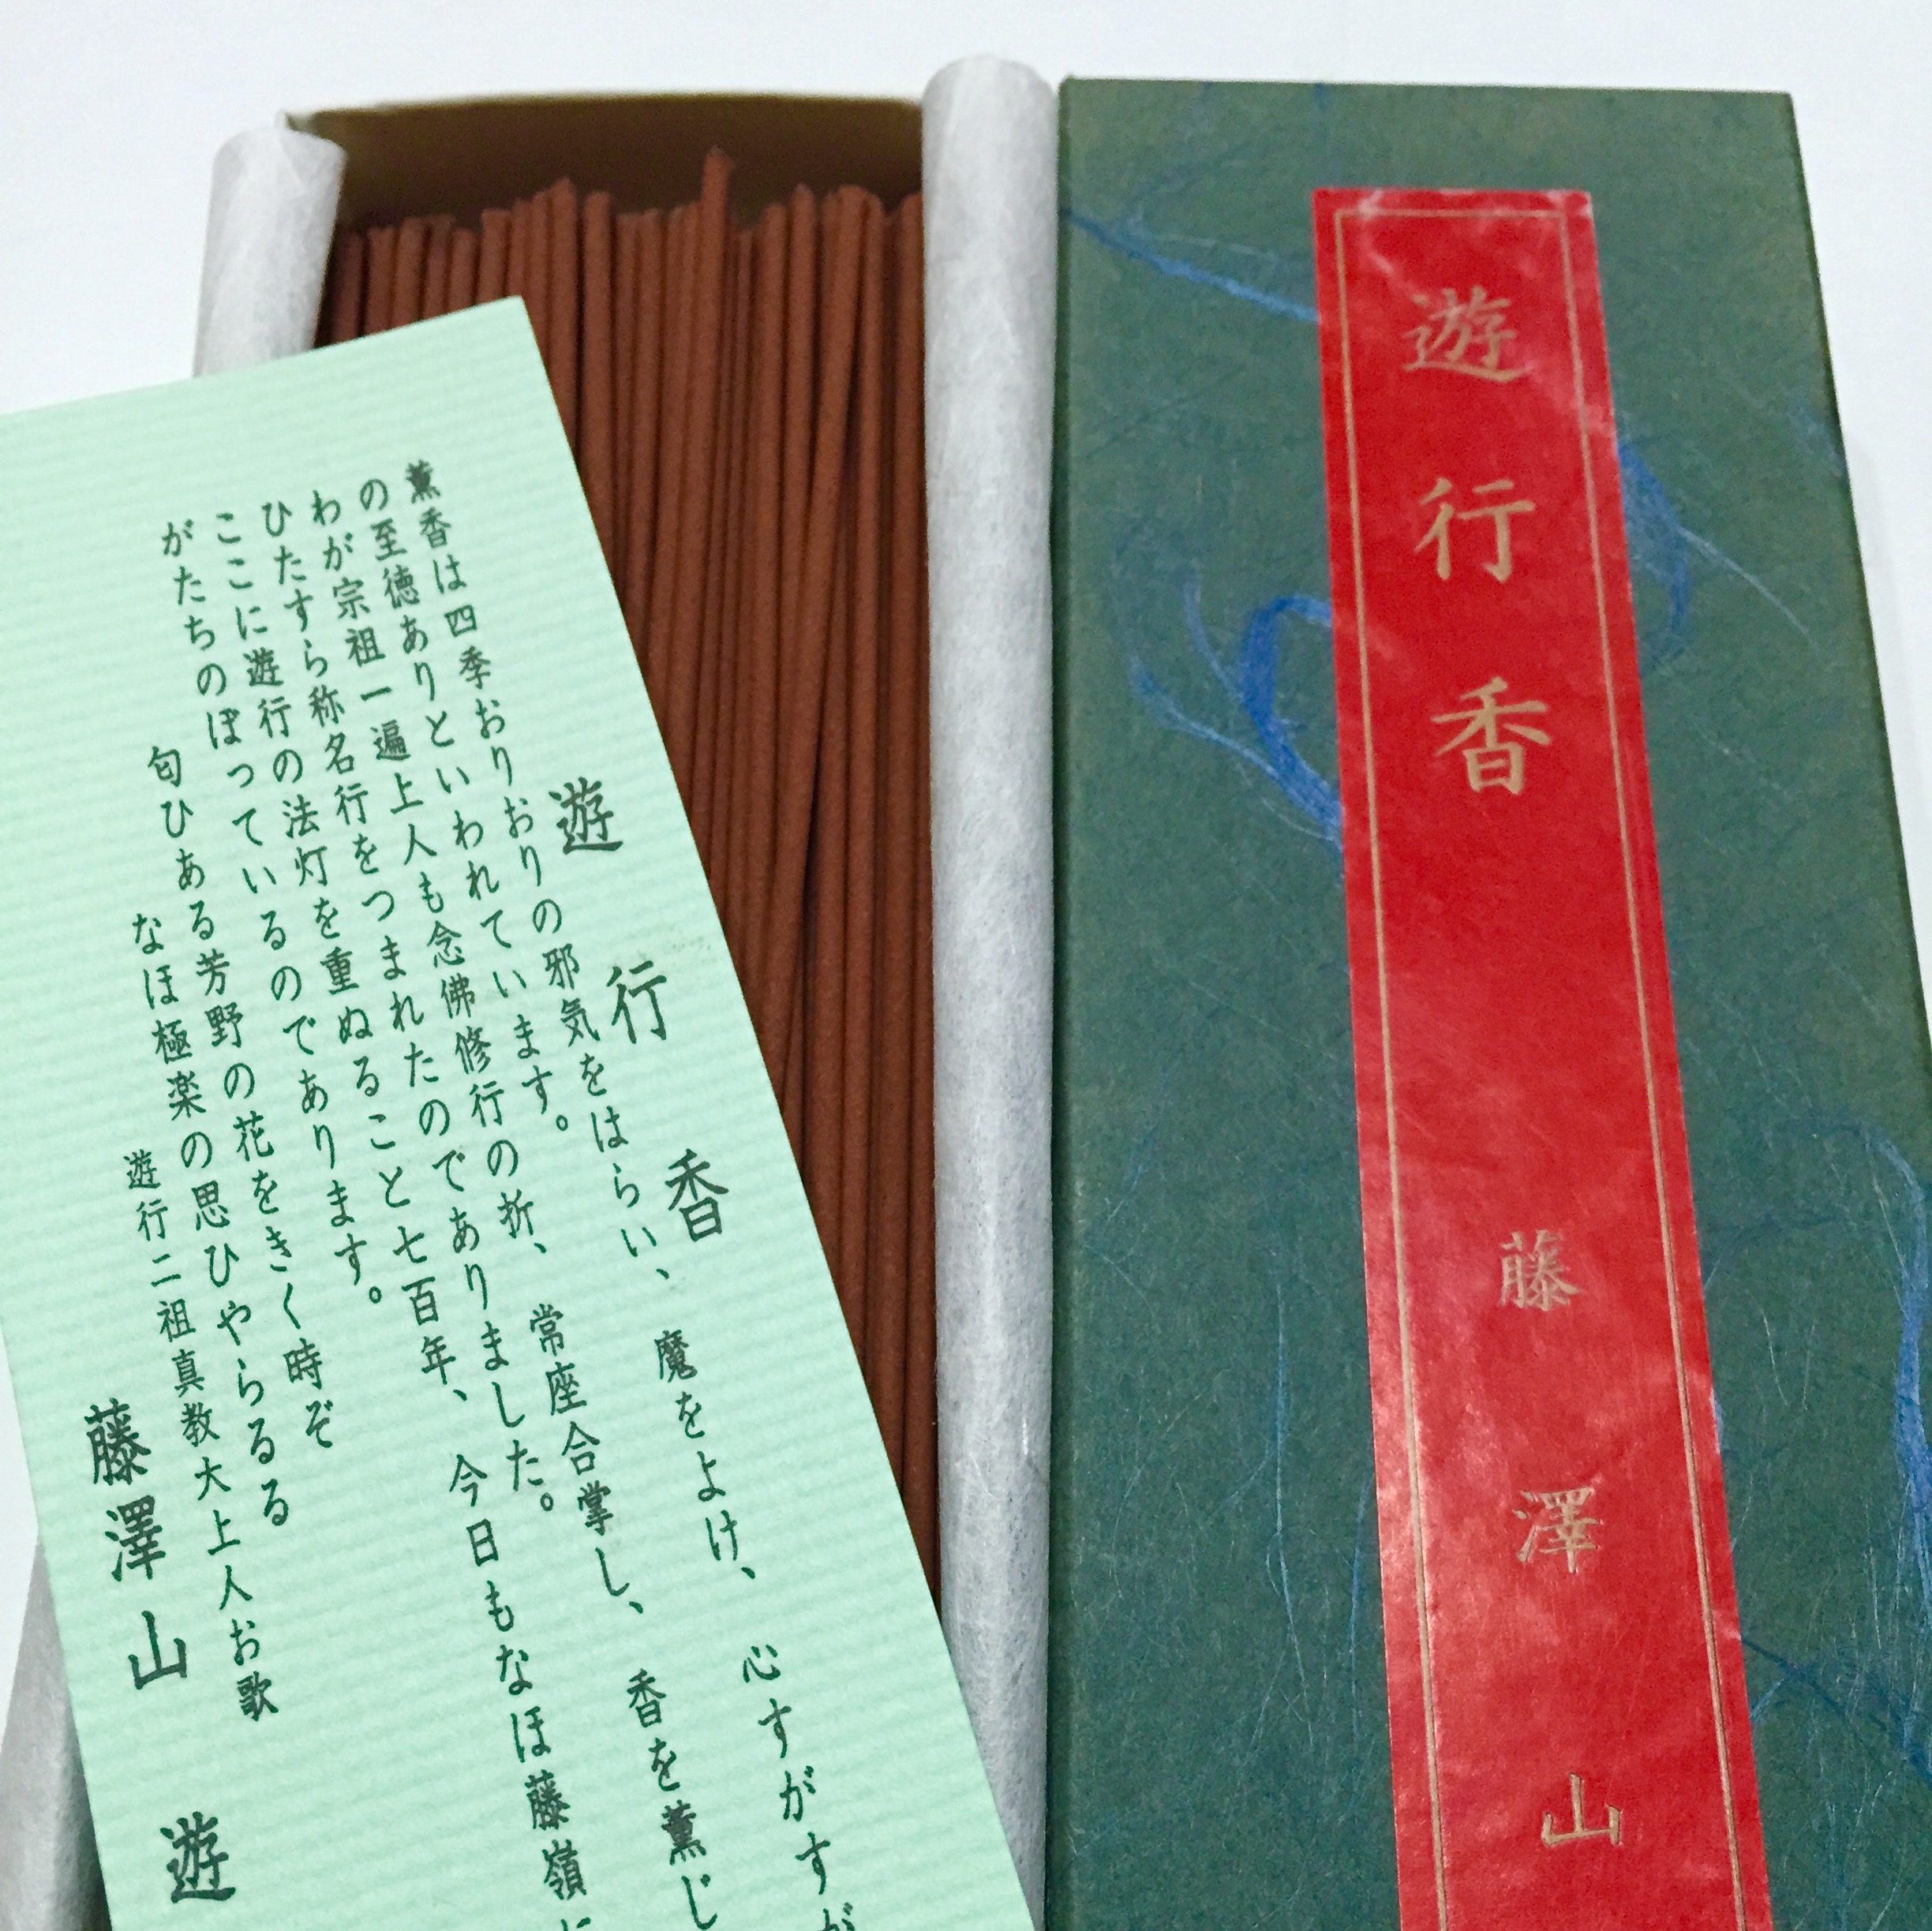 遊行香
藤澤山
遊行香
薫香は四季おりおりの邪気をはらい、魔をよけ、心すがすが
の至徳ありといわれています。
わが宗祖一遍上人も念佛修行の折、常座合掌し、香を薫じ
ひたすら称名行をつまれたのでありました。
ここに遊行の法灯を重ぬること七百年、今日もなほ藤嶺に
がたちのぼっているのであります。
匂ひある芳野の花をきく時ぞ
なほ極楽の思ひやらるる
遊行二祖真教大上人お歌
藤澤山 遊